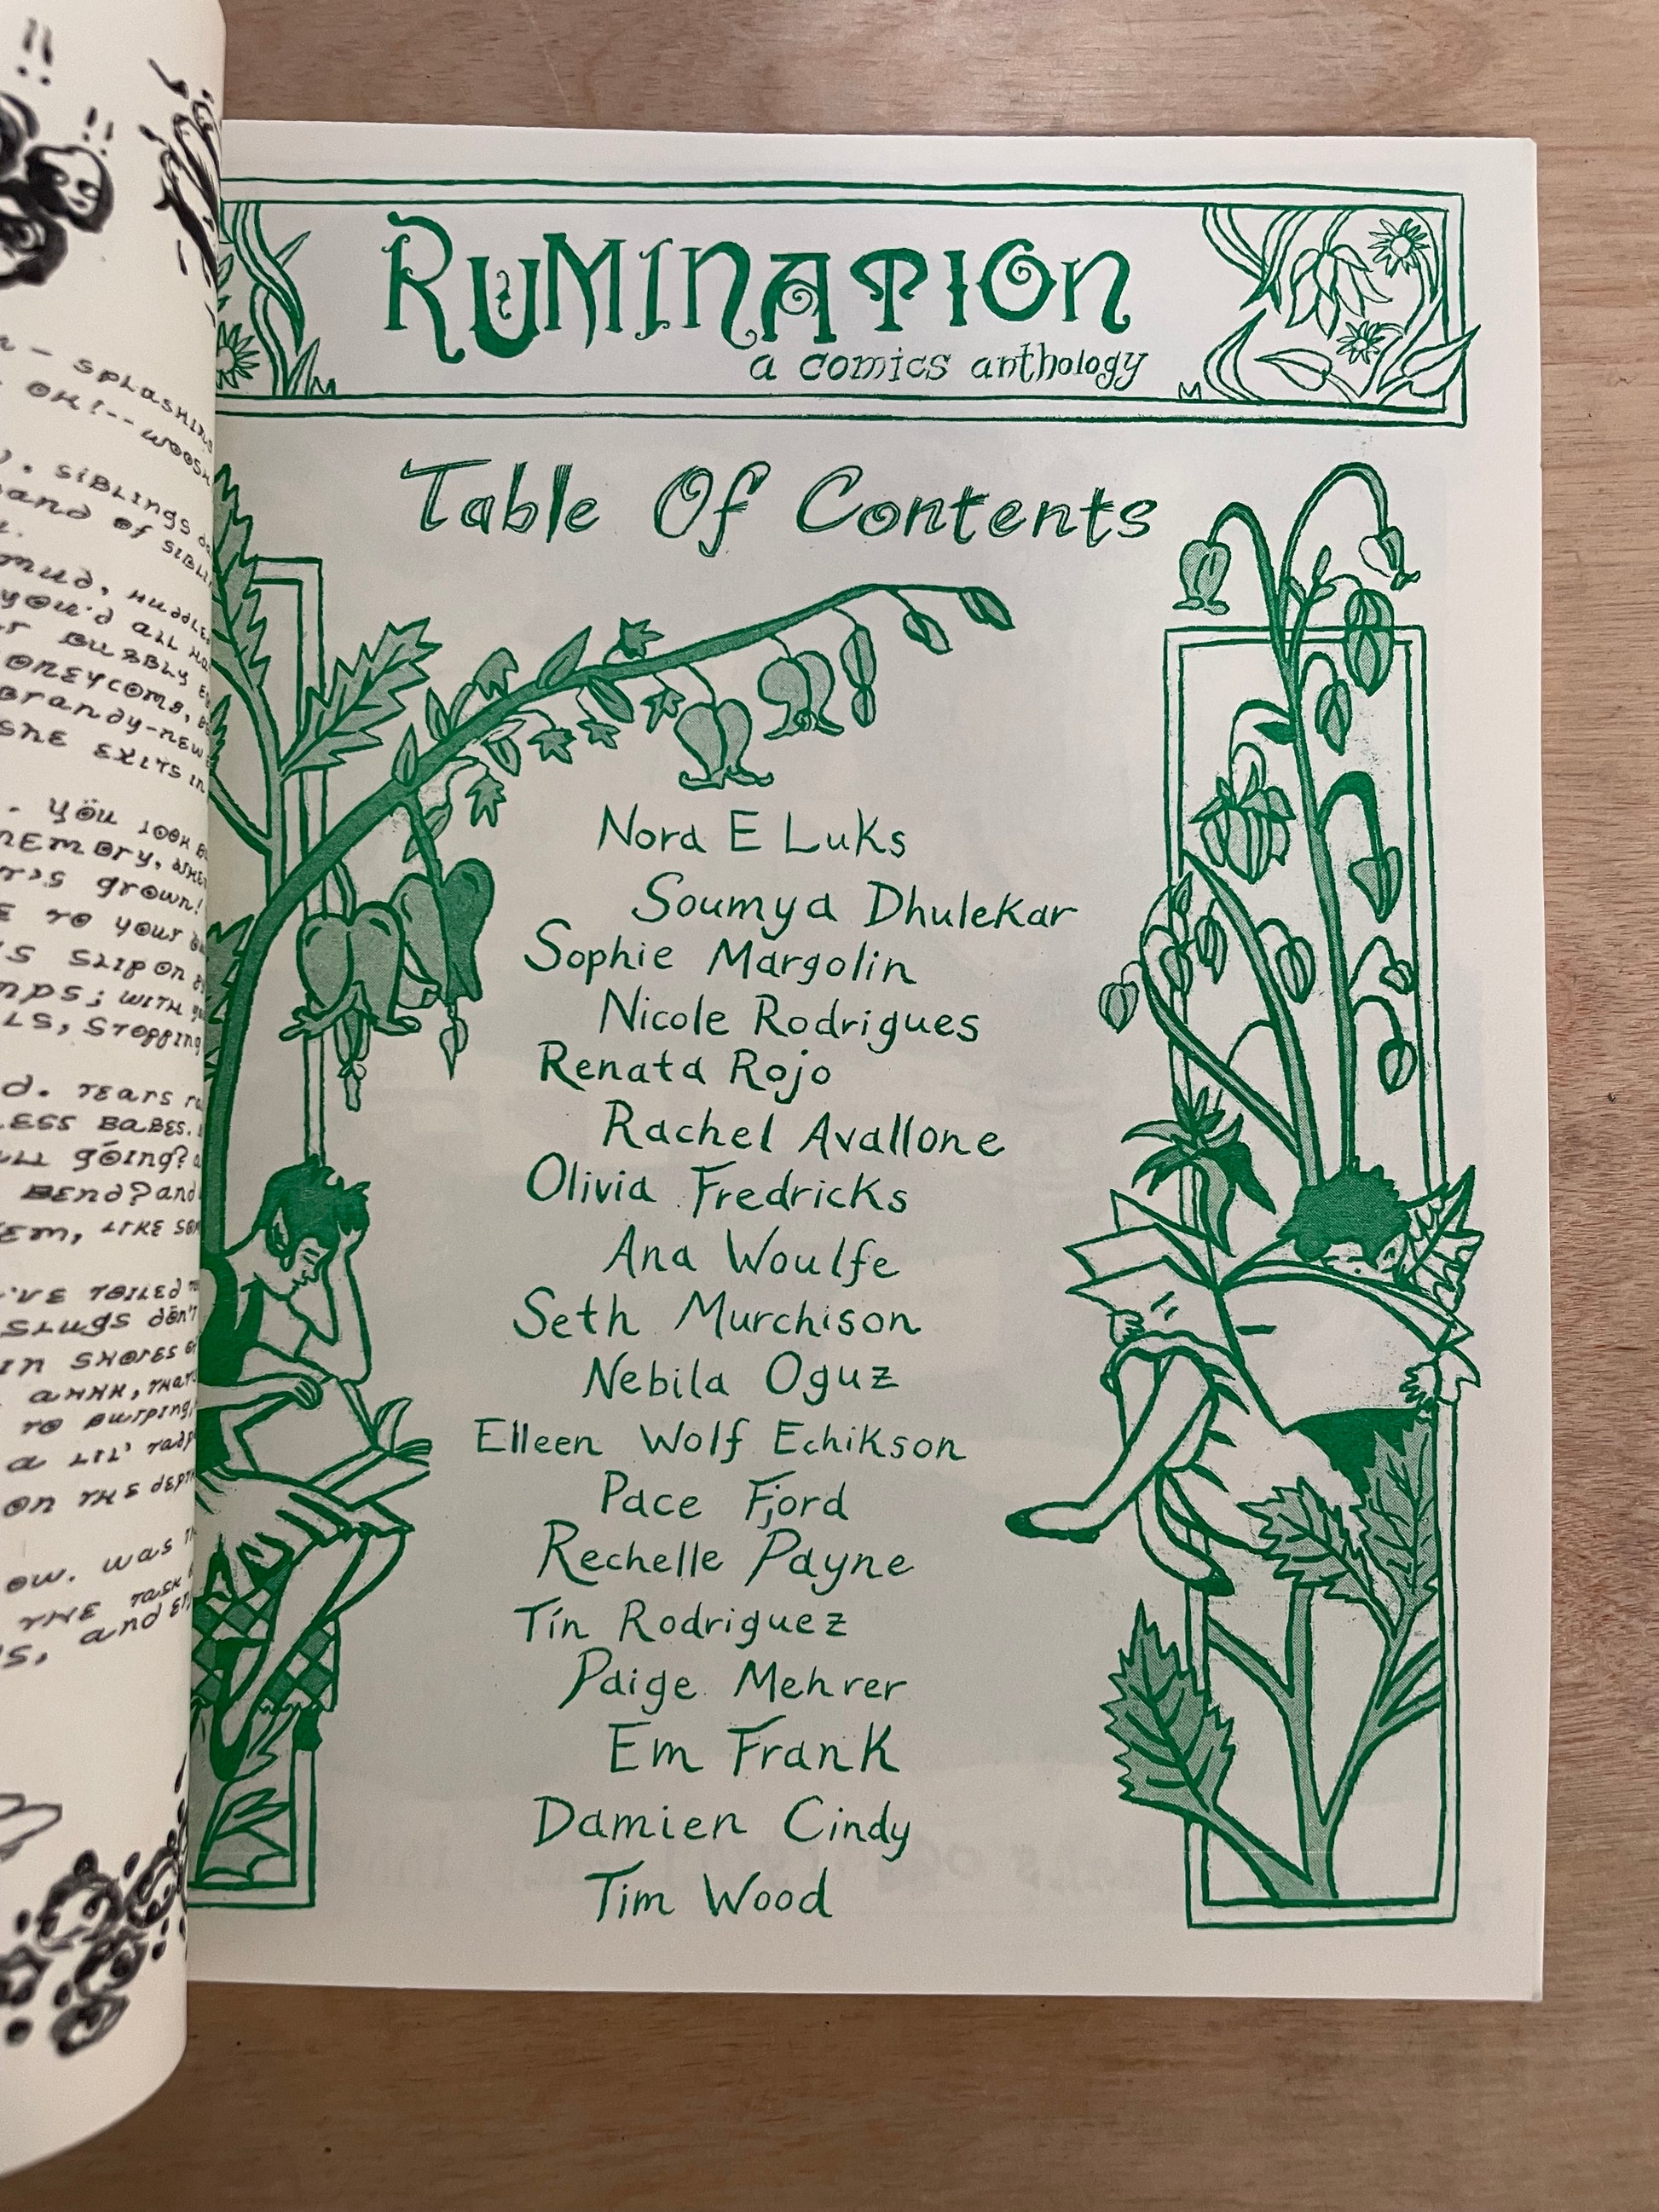 !!
!!
SPLASHING
OH!-- WOOSH
SIBLINGS
BAND OF SIBLIN
MUD, HUDDLED
YOU'D ALL HA
BUBBLY
ONEYCOMB,
BRANDY-NEW
SHE EXITS IN
YOU LOOK
MEMORY, WHE
GROWN!
TO YOUR
SLIP ON
MPS; WITH
LS, STOPPING
TEARS
LESS BABES.
GOING?
BEND? AND
EM, LIKE
'VE TOILED
SLUGS DON'T
IN SHORES
AHHH, THAT
TO BURPING,
A LIL' TADP
ON THE DEPTH
OW. WAS
THE TASK
AND
RUMINATION
a comics anthology
Table Of Contents
Nora E Luks
Soumya Dhulekar
Sophie Margolin
Nicole Rodrigues
Renata Rojo
Rachel Avallone
Olivia Fredricks
Ana Woulfe
Seth Murchison
Nebila Oguz
Elleen Wolf Echikson
Pace Fjord
Rechelle Payne
Tín Rodriguez
Paige Mehrer
Em Frank
Damien Cindy
Tim Wood